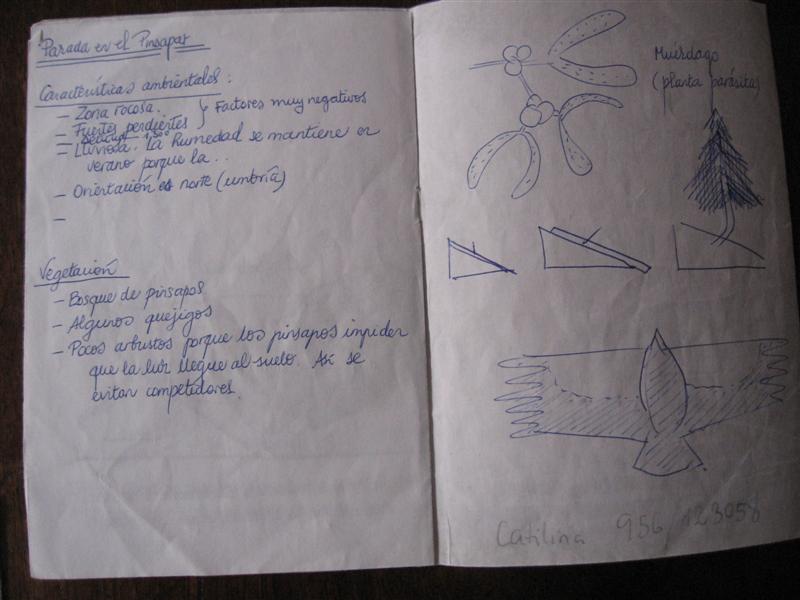 Parada en el Pinsapar
Características ambientales:
- Zona rocosa.
- Fuertes pendientes
Factores muy negativos
- Lluviosa. La humedad se mantiene en
verano porque la..
- Orientación es norte (umbría)
-
Vegetación
- Bosque de pinsapos
- Algunos quejigos
- Pocos arbustos porque los pinsapos impiden
que la luz llegue al suelo. Así se
evitan competidores.
Muérdago
(planta parásita)
Catilina 956 123058